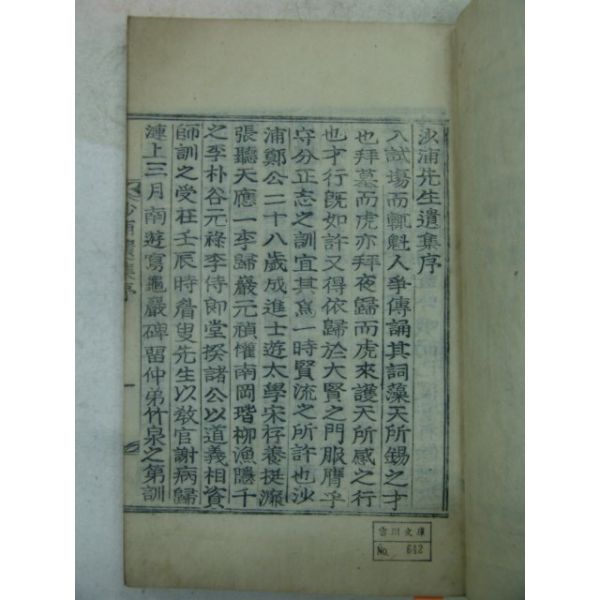 沙浦先生遺集序
入試場而輒魁人爭傳誦其詞藻天所錫之才
也拜墓而虎亦拜夜歸而虎來護天所感之行
也才行旣如許又得依歸於大賢之門服膺乎
守分正志之訓宜其爲一時賢流之所許也沙
浦鄭公二十八歲成進士遊太學宋存養挺濂
張聽天應一李歸巖元禎懽南岡瑎柳漁隱千
之李朴谷元祿李侍郞堂揆諸公以道義相資
師訓之受在壬辰時眉叟先生以敎官謝病歸
漣上三月南遊寫龜巖碑留仲弟竹泉之第訓
沙浦遺集序
一
雪川文庫
No. 642